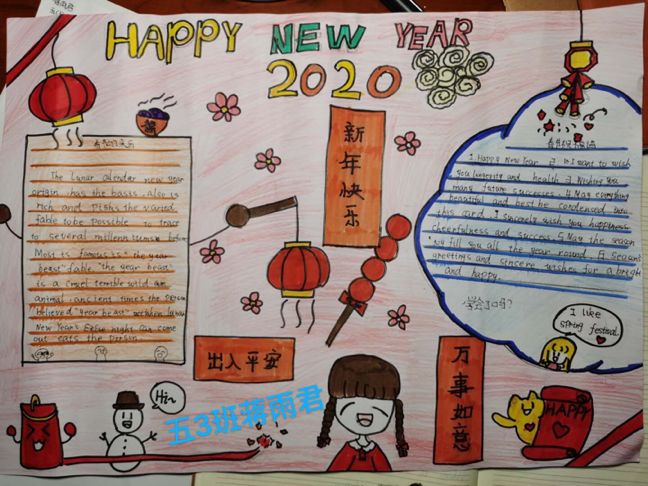 HAPPY NEW YEAR
2020
春节的来历
The Lunar calendar new year
origin has the basis. Also is
rich and
fable to be possible to trace
to several millenniums before
Most is famous is "the year
beast" fable. "the year beast"
is a cruel terrible wild
animal. ancient times the person
believed "year beast"
New Year's night can come
out eats the person.
新年快乐
春节祝福语
1. Happy New Year I want to wish
you longevity and health Wishing you
many future successes. 4 May everything
beautiful and best be condensed into
this card. I sincerely wish you happiness
cheerfulness and success. 5 May the season
fill you all the year round. 6 Season's
greetings and sincere wishes for a bright
and happy.
学会了吗?
I like
spring festival.
出入平安
万事如意
Hi~
HAPPY
五3班蒋雨君